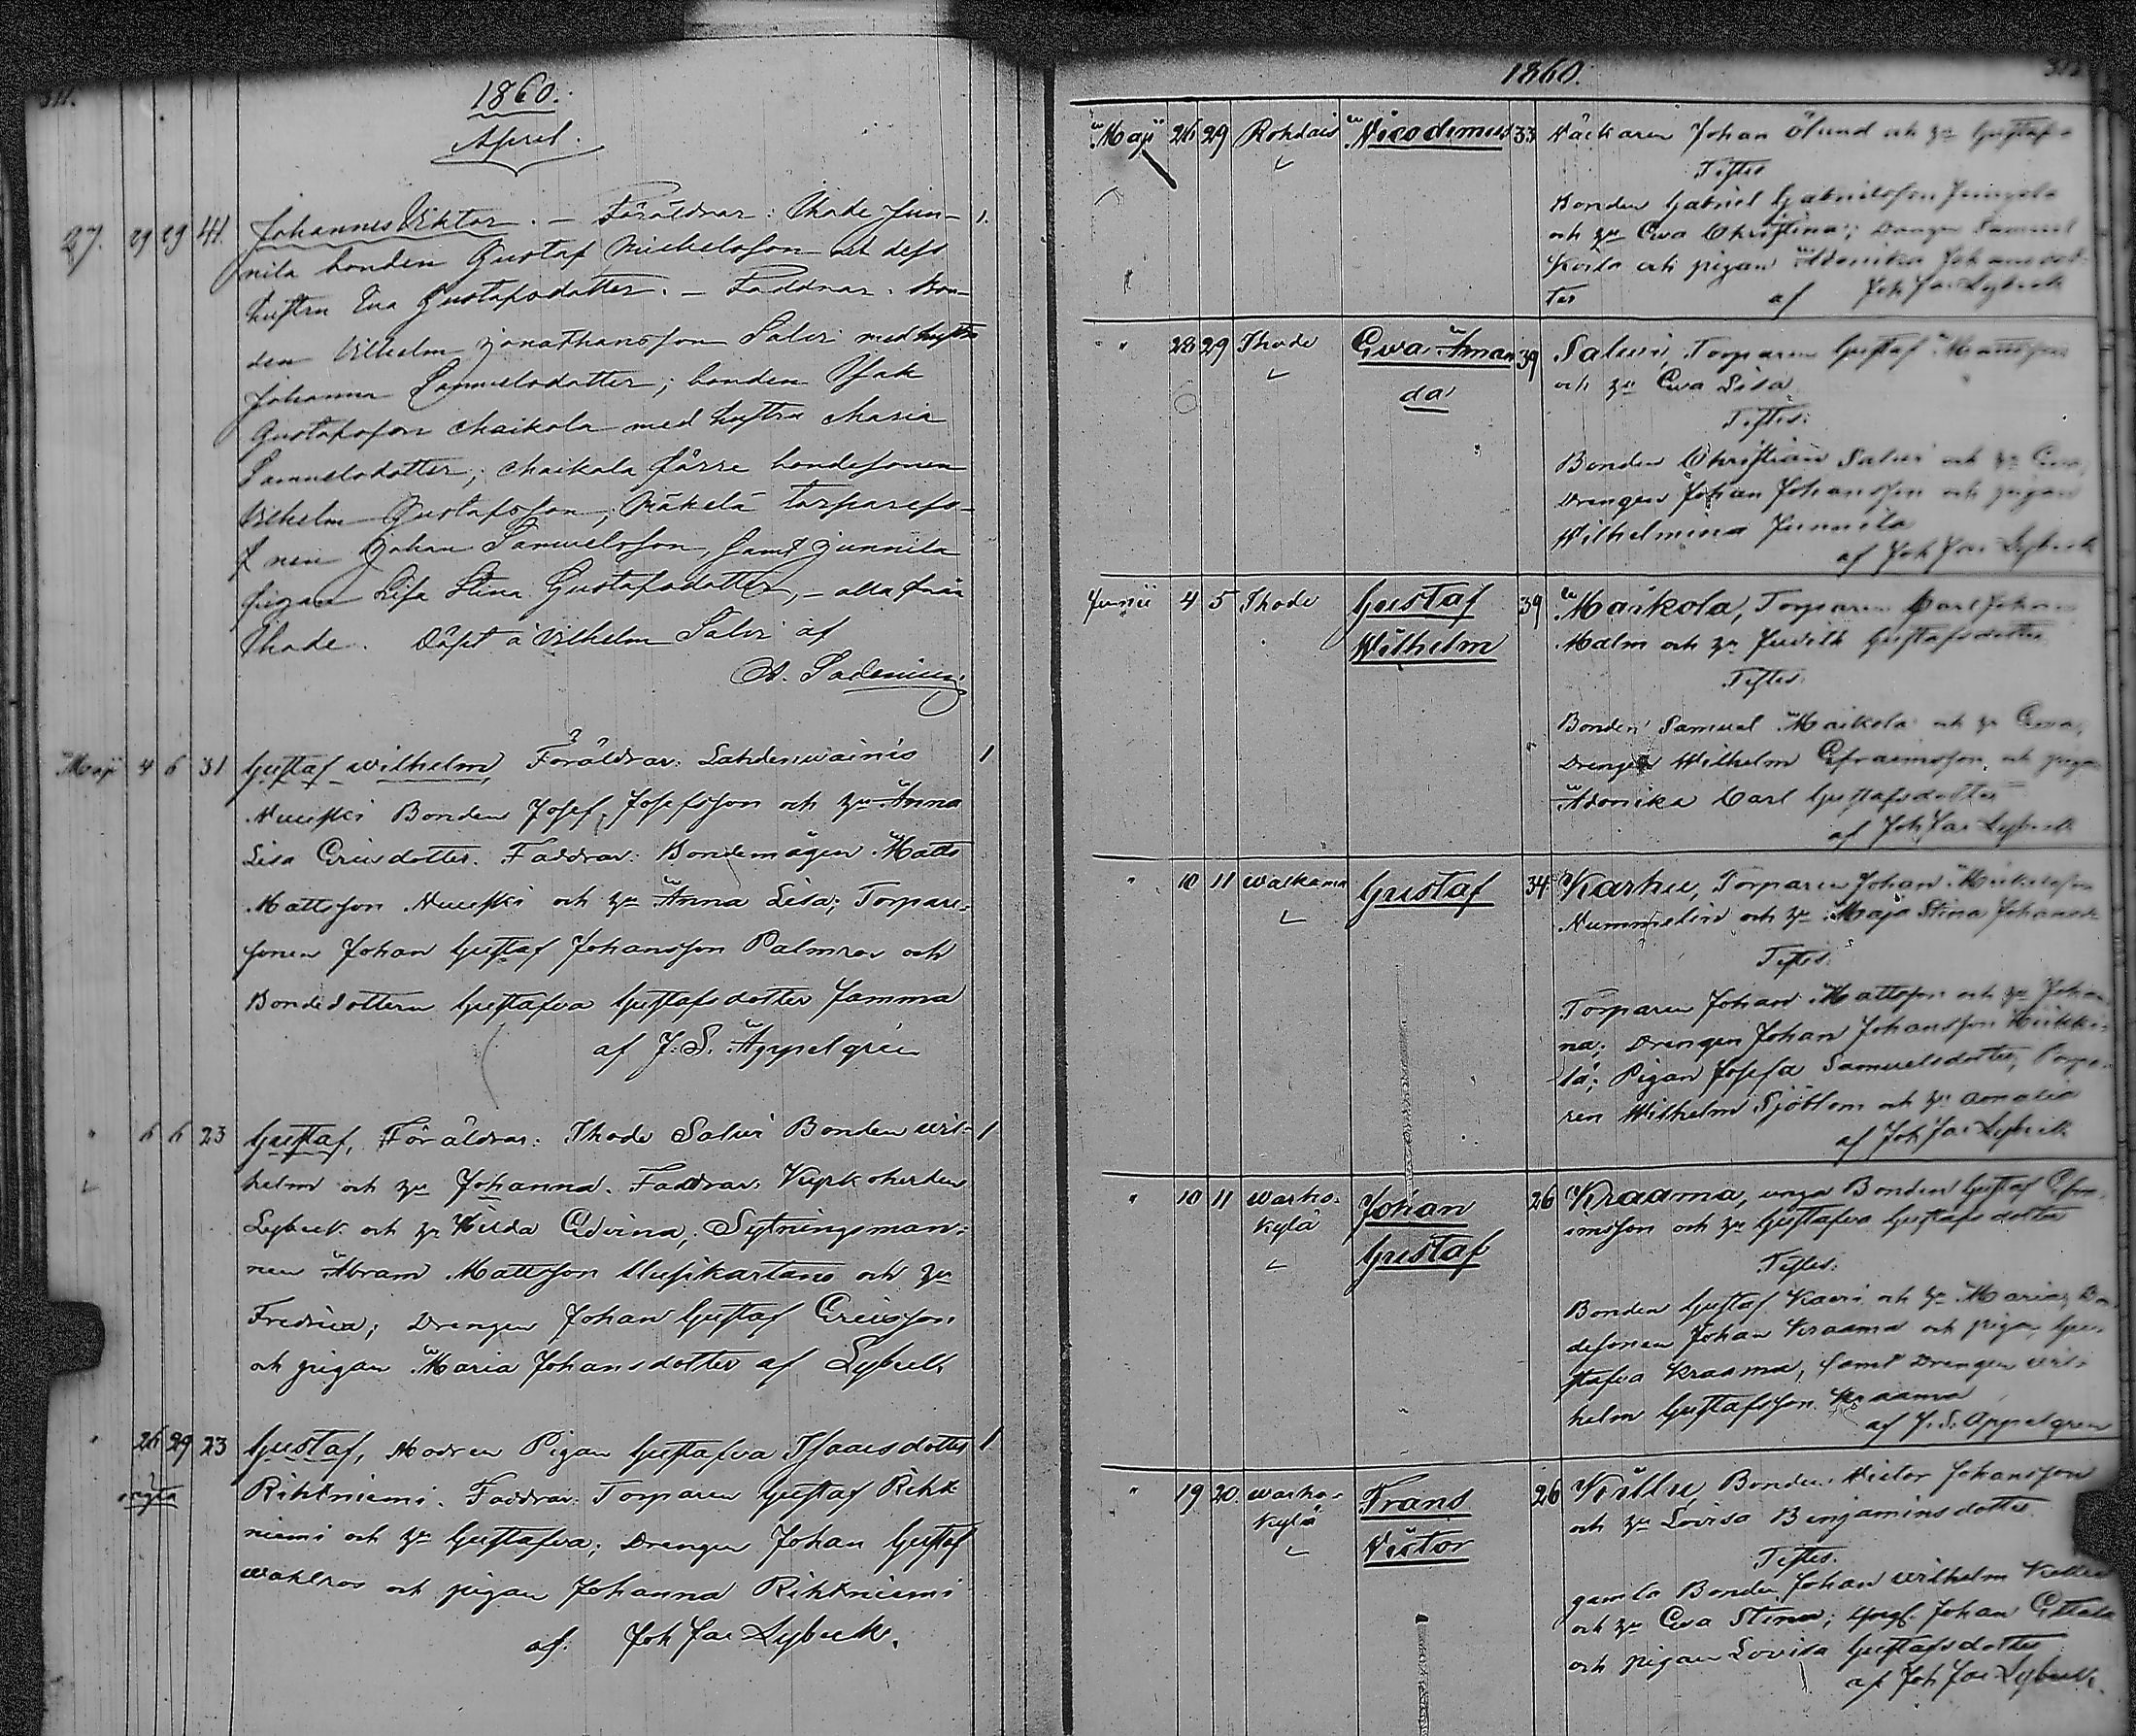 1860.
April.
27. 29 29 41. Johannes Viktor. — Föräldrar: Ihode Jun-
nila bonden Gustaf Michelsson och dess
hustru Eva Gustafsdotter. — Faddrar. Bon-
den Vilhelm Jonathansson Salvi med hustru
Johanna Samuelsdotter; bonden Isak
Gustafsson Maikola med hustru Maria
Samuelsdotter; Maikola bondesonen
Vilhelm Gustafsson; Mäkelä torpareso-
nen Johan Samuelsson, samt Junnila
pigan Lisa Stina Gustafsdotter, — alla från
Ihode. Döpt å Vilhelm Salvi af
1.
Maji 4 6 31 Gustaf Wilhelm, Föräldrar: Lahdenwainio
Bonden Josef Josefsson och hu Anna
Lisa Ericsdotter. Faddrar: Bondemågen Matts
Mattsson och hu Anna Lisa; Torpare-
sonen Johan Gustaf Johansson Palmros och
Bondedottern Gustafva Gustafsdotter Jamma
af J. S. Appelgrén
1
" 6 6 23 Gustaf, Föräldrar: Ihode Salvi Bonden Wil-
helm och hu Johanna. Faddrar: Kyrkoherden
Lybeck och hu Hilda Edvina; Sytningsman-
nen Abram Mattsson Uusikartano och hu
Fredrica; Drengen Johan Gustaf Ericsson
och pigan Maria Johansdotter af Lybeck
1
" 26 29 23 Gustaf, Modren Pigan Gustafva Isaacsdotter
oägta Rihtniemi. Faddrar: Torparen Gustaf Riht-
niemi och hu Gustafva; Drengen Johan Gustaf
Wahlros och pigan Johanna Rihtniemi
af Joh Jac Lybeck.
1
1860.
Maji 26 29 Rohdais Nicodemus 33 Johan Ölund och hu Gustafva
Testes
Bonden Gabriel Gabrielsson
och hu Eva Christina; Drengen Samuel
och pigan Adonika Johansdot-
ter af Joh Jac Lybeck
" 28 29 Ihode Eva Aman- 39 Salvi, Torparen Gustaf
da och hu Eva Lisa
Testes:
Bonden Christian Salvi och hu Eva,
Drengen Johan Johansson och pigan
Wilhelmina Junnila
af Joh Jac Lybeck
Junii 4 5 Ihode Gustaf 39 Maikola, Torparen Carl Johan
Wilhelm Malm och hu Judith Gustafsdotter
Testes:
Bonden Samuel Maikola och hu Eva,
Drengen Wilhelm Efraimsson, och pigan
Adonika Carl Gustafsdotter
af Joh Jac Lybeck
" 10 11 Walkama Gustaf 34 Karhu, Torparen Johan Mickelsson
Nummelin och hu Maja Stina Johansd.
Testes:
Torparen Johan Mattsson och hu Johan-
na; Drengen Johan Johansson Heikki-
lä; Pigan Josefa Samuelsdotter, Torpa-
ren Wilhelm Sjöblom och hu Amalia
af Joh Jac Lybeck
" 10 11 Warho- Johan 26 Kraama, unga Bonden Gustaf Efra-
kylä Gustaf imsson och hu Gustafva Gustafsdotter
Testes:
Bonden Gustaf Kaeri och hu Maria; Bon-
desonen Johan Kraama och pigan Gu-
stafva Kraama, samt Drengen Wil-
helm Gustafsson Kraama
af J. S. Appelgren
" 19 20. Warho- Frans 26 Küllu, Bonden Victor Johansson
kylä Victor och hu Lovisa Benjaminsdotter
Testes.
gamla Bonden Johan Wilhelm
och hu Eva Stina; Johan
och pigan Lovisa Gustafsdotter
af Joh Jac Lybeck.